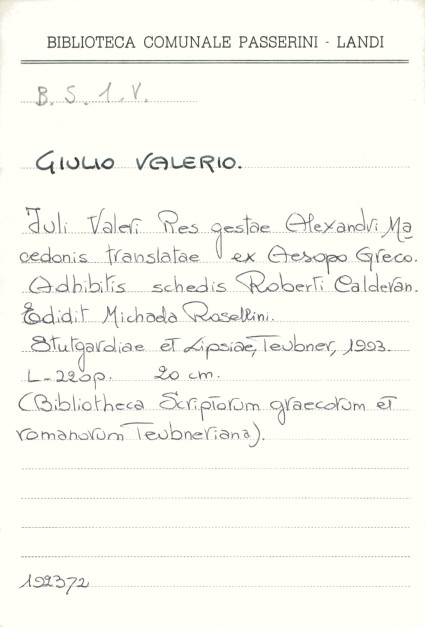 BIBLIOTECA COMUNALE PASSERINI - LANDI
B. S. 1. V.
GIULIO VALERIO.
Juli Valeri Res gestae Alexandri Ma
cedonis translatae ex Aesopo Greco.
Adhibitis schedis Roberti Calderan.
Edidit Michaela Rosellini.
Stutgardiae et Lipsiae, Teubner, 1993.
L-220p. 20 cm.
(Bibliotheca Scriptorum graecorum et
romanorum Teubneriana).
192372